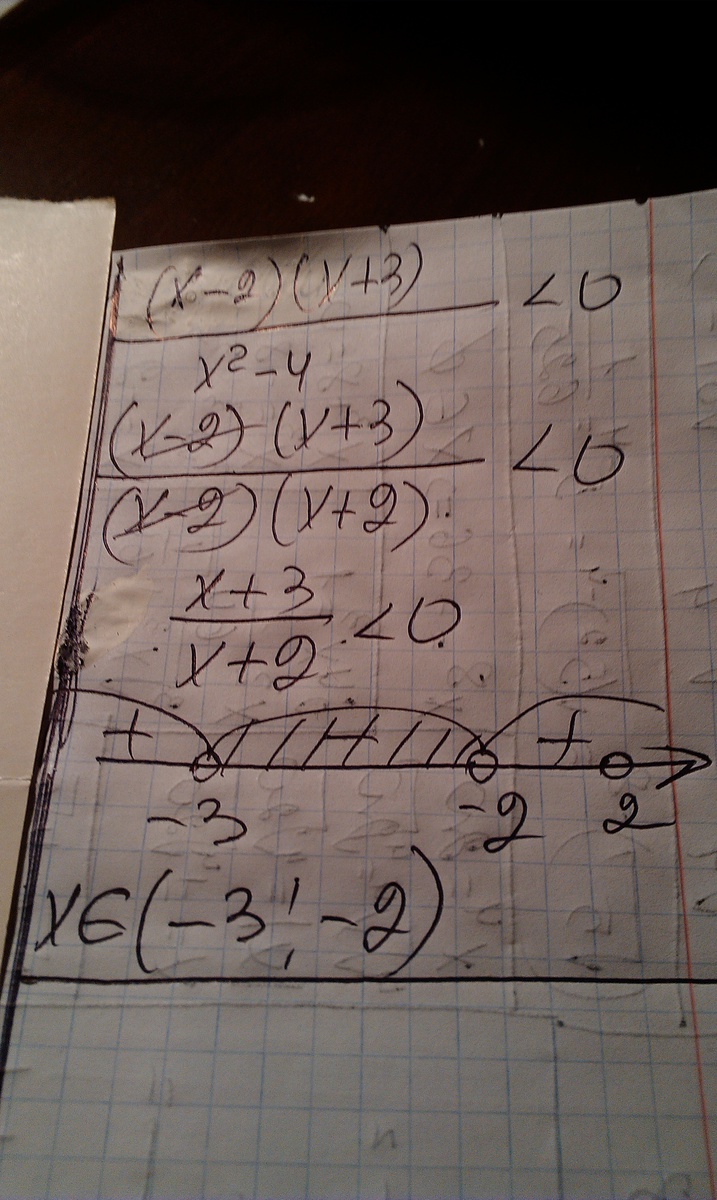 (x-2)(x+3)/x²-4 <0
(x-2)(x+3)/(x-2)(x+2) <0
x+3/x+2 <0
+ - +
-3 -2 2
x∈(-3;-2)